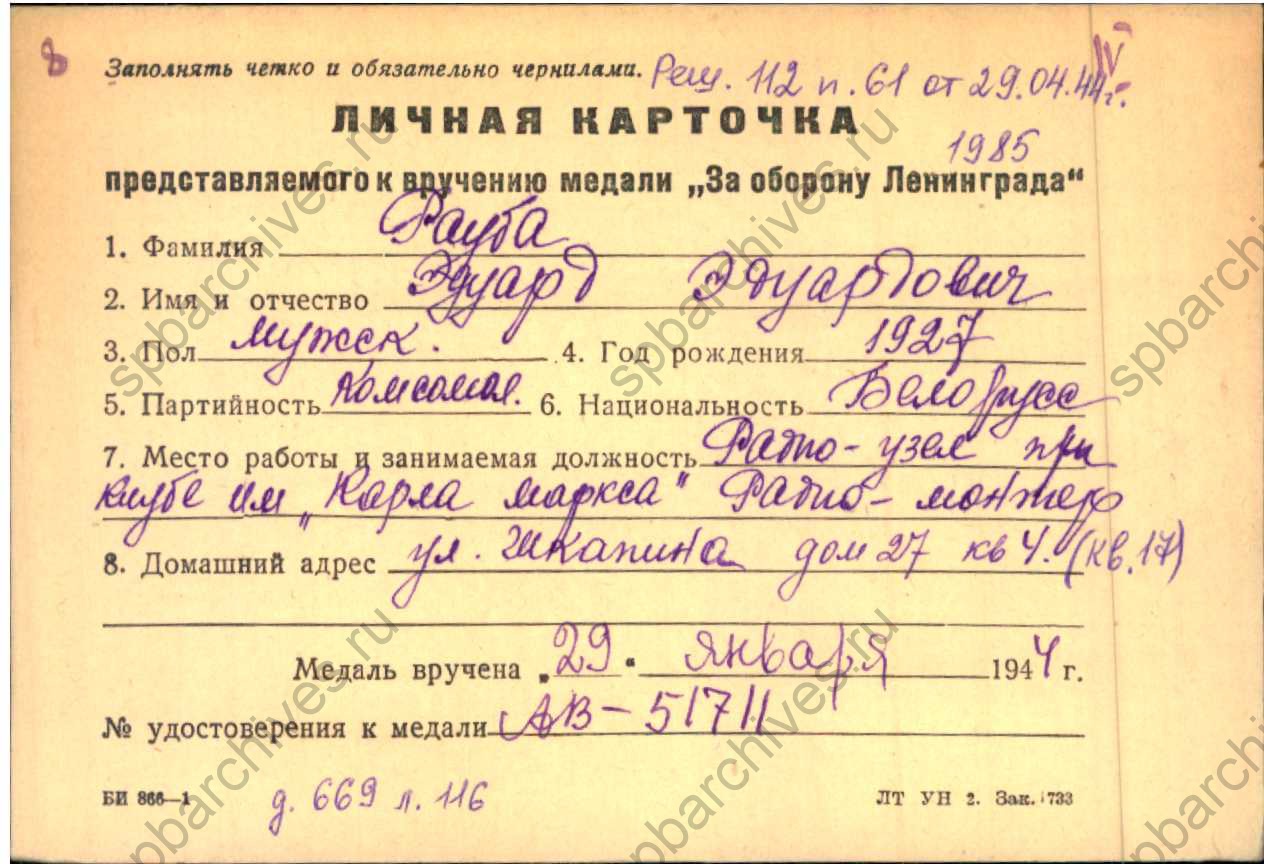 8
Заполнять четко и обязательно чернилами. Реш. 112 п. 61 от 29.04.44г.
IV
ЛИЧНАЯ КАРТОЧКА
1985
представляемого к вручению медали „За оборону Ленинграда“
1. Фамилия Рауба
2. Имя и отчество Эдуард Эдуардович
3. Пол мужск. 4. Год рождения 1927
5. Партийность Комсомол. 6. Национальность Белорусс
7. Место работы и занимаемая должность Радио-узел при
клубе им „Карла маркса" Радио-монтер
8. Домашний адрес ул. Шкапина дом 27 кв 4. (кв. 17)
Медаль вручена „29“ января 1944 г.
№ удостоверения к медали АВ-51711
БИ 866—1 д. 669 л. 116 ЛТ УН 2. Зак. 1733
spbarchives.ru